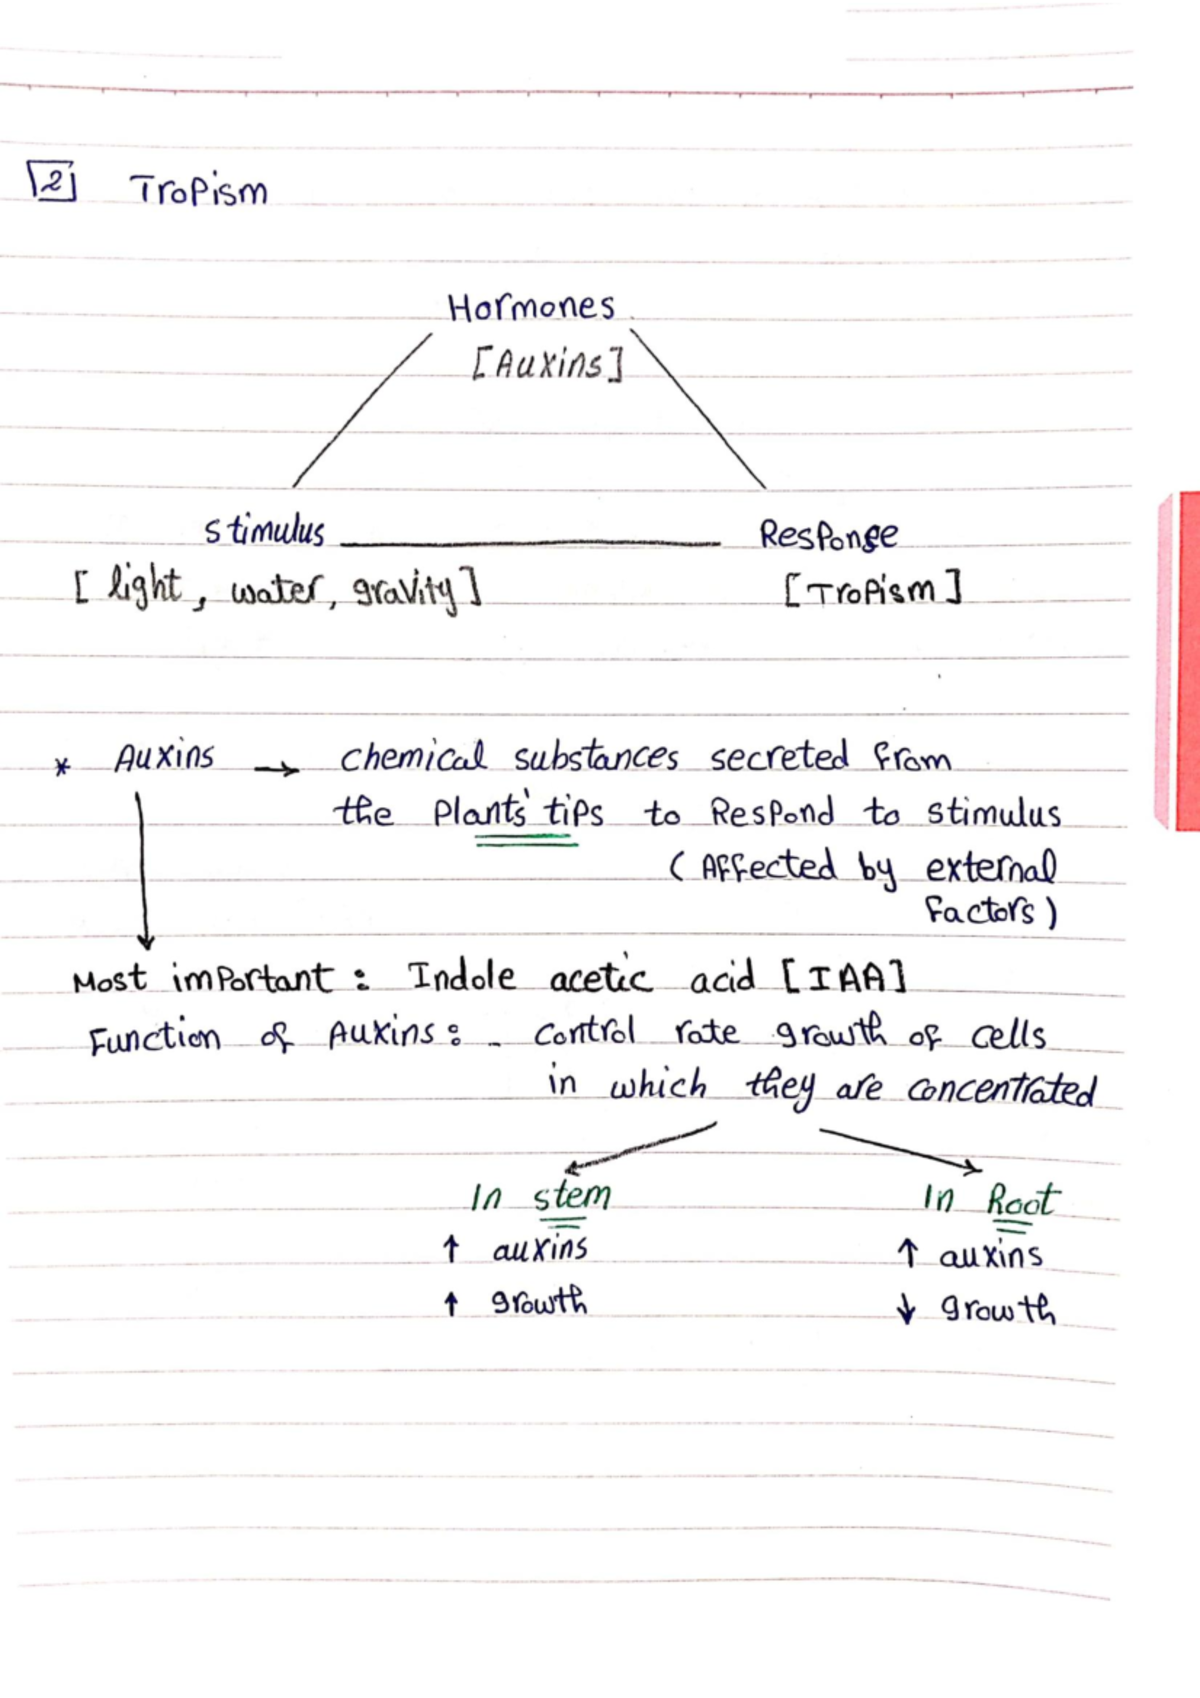 2 Tropism
Hormones
[Auxins]
Stimulus Response
[light, water, gravity] [Tropism]
* Auxins → chemical substances secreted from
the Plants' tips to Respond to stimulus
(Affected by external
Factors)
Most important : Indole acetic acid [IAA]
Function of Auxins : - control rate growth of cells
in which they are concentrated
In stem In Root
↑ auxins ↑ auxins
↑ growth ↓ growth